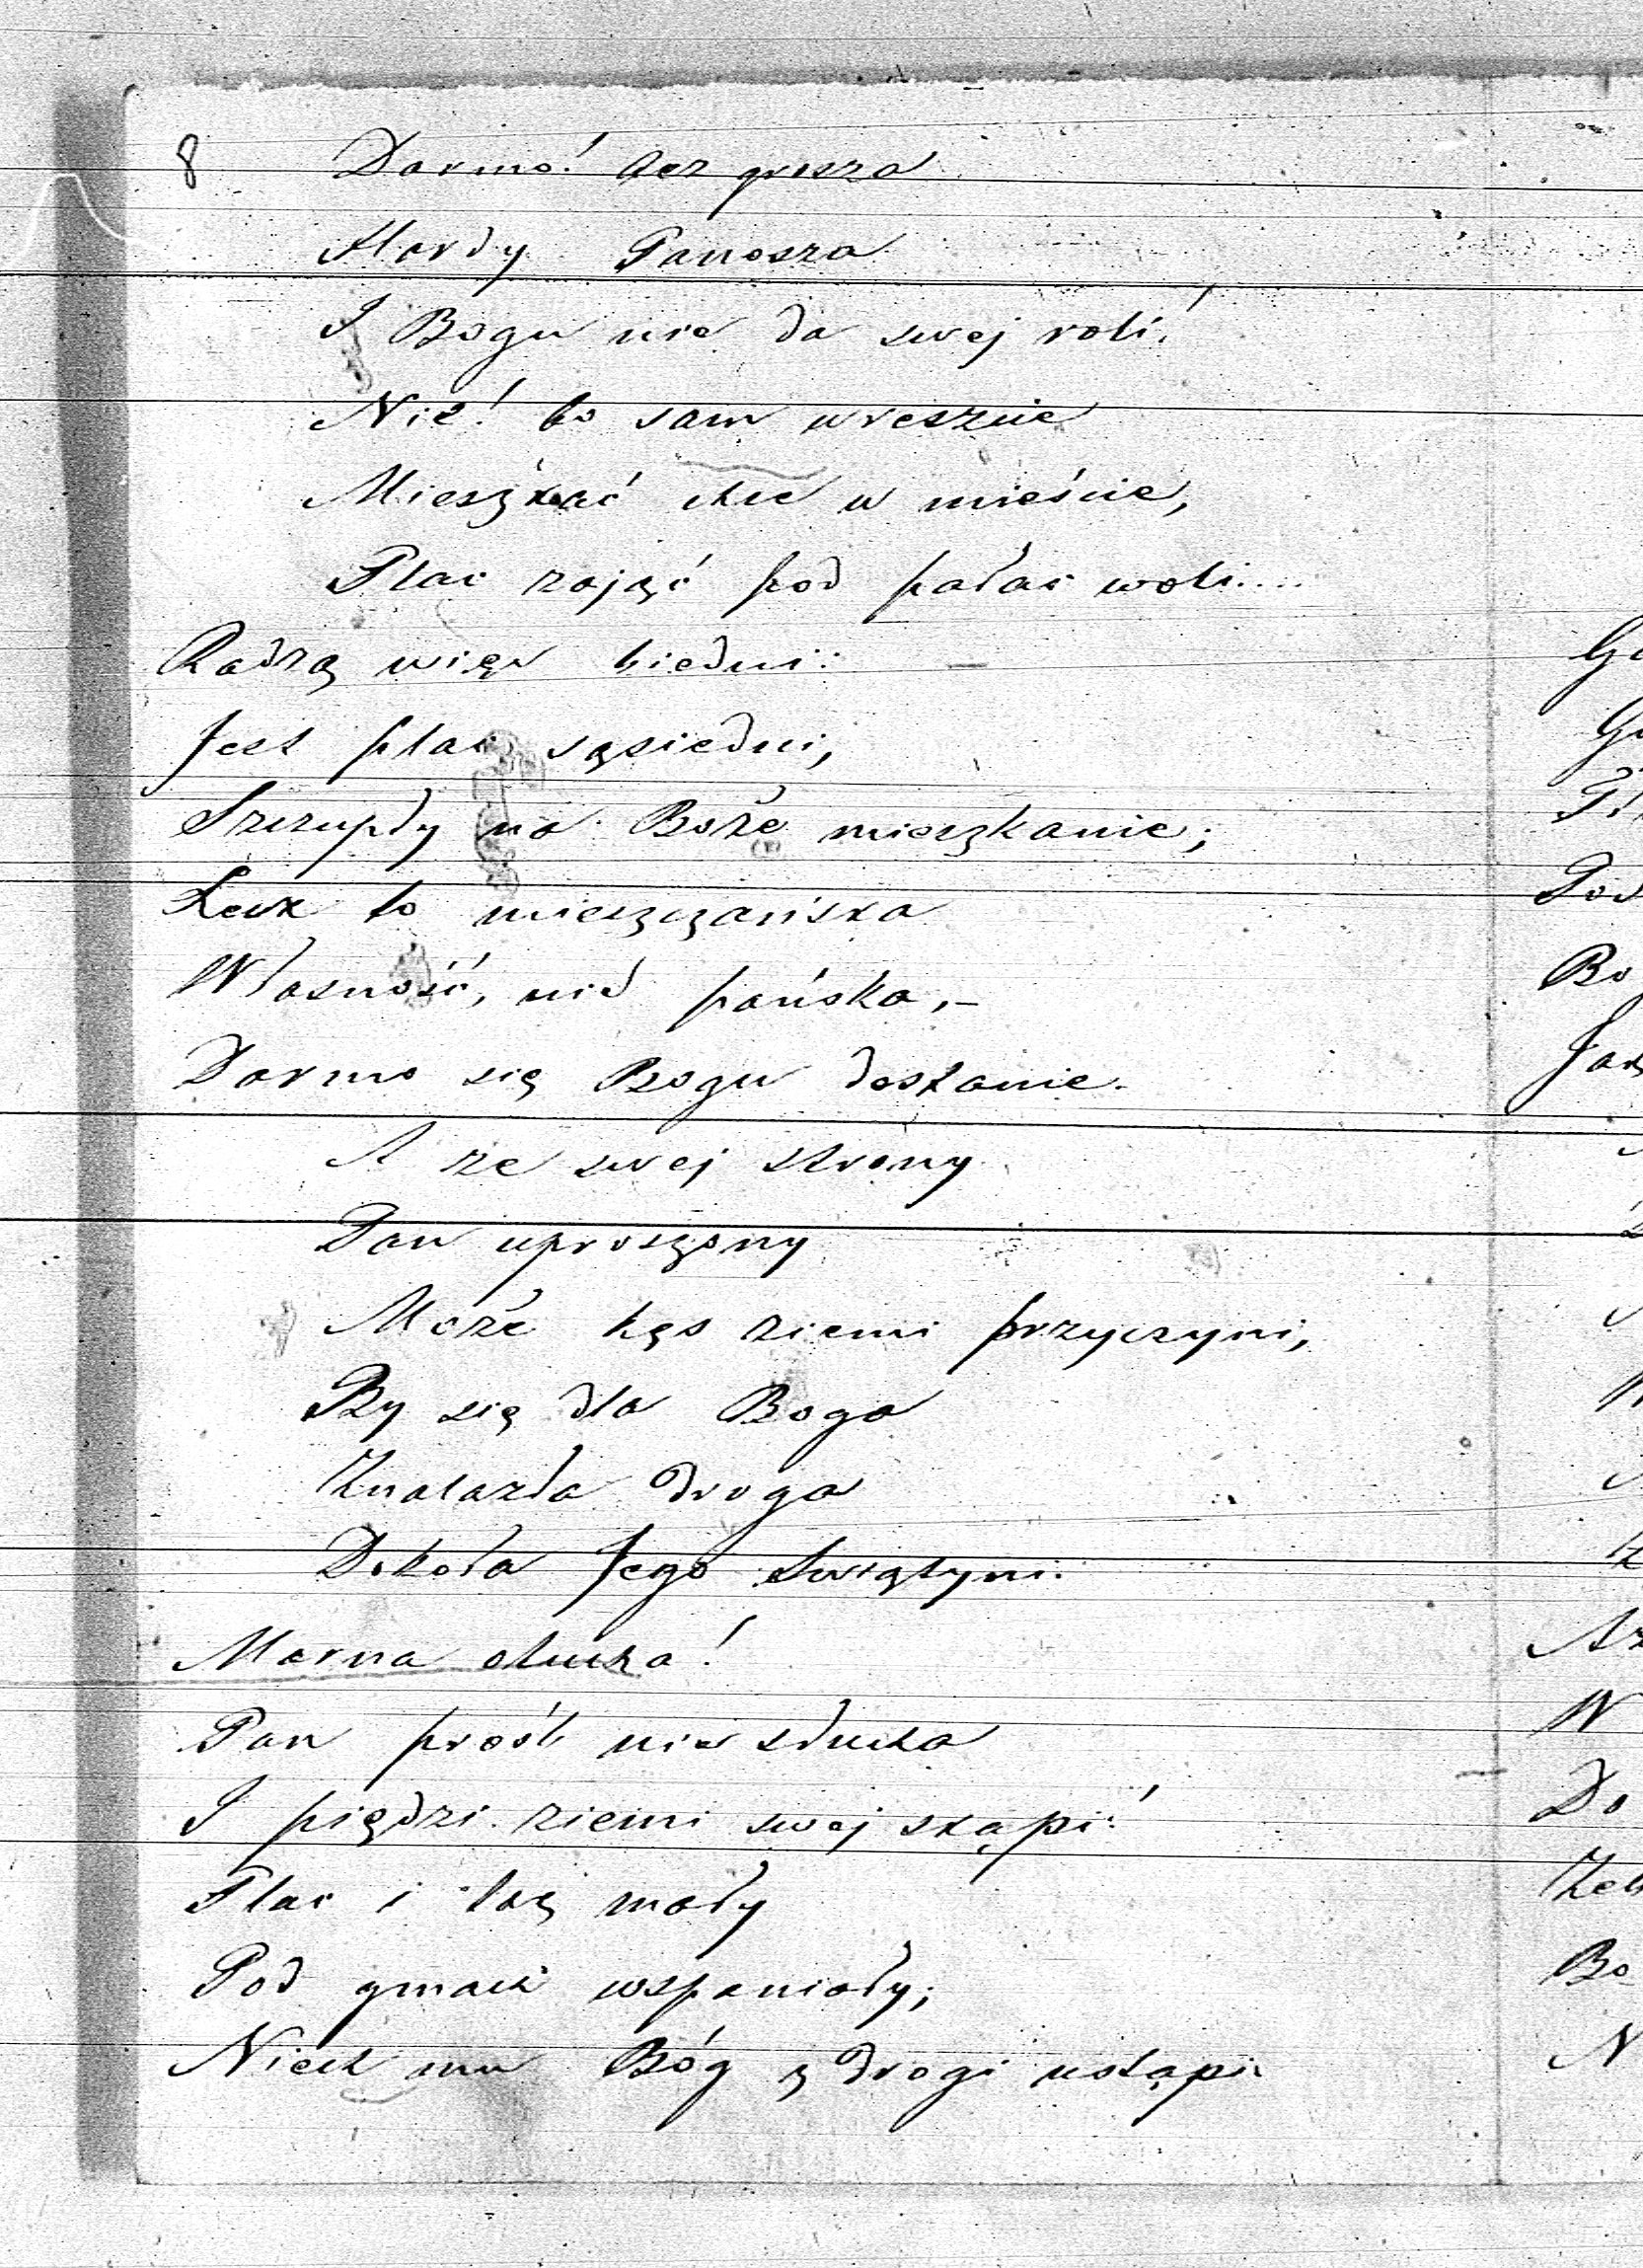 8
Darmo! bez grosza
Hardy Panosza
I Bogu nie da swej roli!
Nie! bo sam wreszcie
Mieszkać chce w mieście,
Plac zająć pod pałac woli....
Radzą więc biedni:
Jest plac sąsiedni,
Szczupły na Boże mieszkanie;
Lecz to mieszczańska
Własność, nie pańska,-
Darmo się Bogu dostanie.
A ze swej strony
Pan uproszony
Może kęs ziemi przyczyni,
By się dla Boga
Znalazła droga
Dokoła Jego Świątyni.
Marna otucha!
Pan próśb nie słucha
I piędzi ziemi swej skąpi!
Plac i tak mały
Pod gmach wspaniały;
Niech mu Bóg z drogi ustąpi